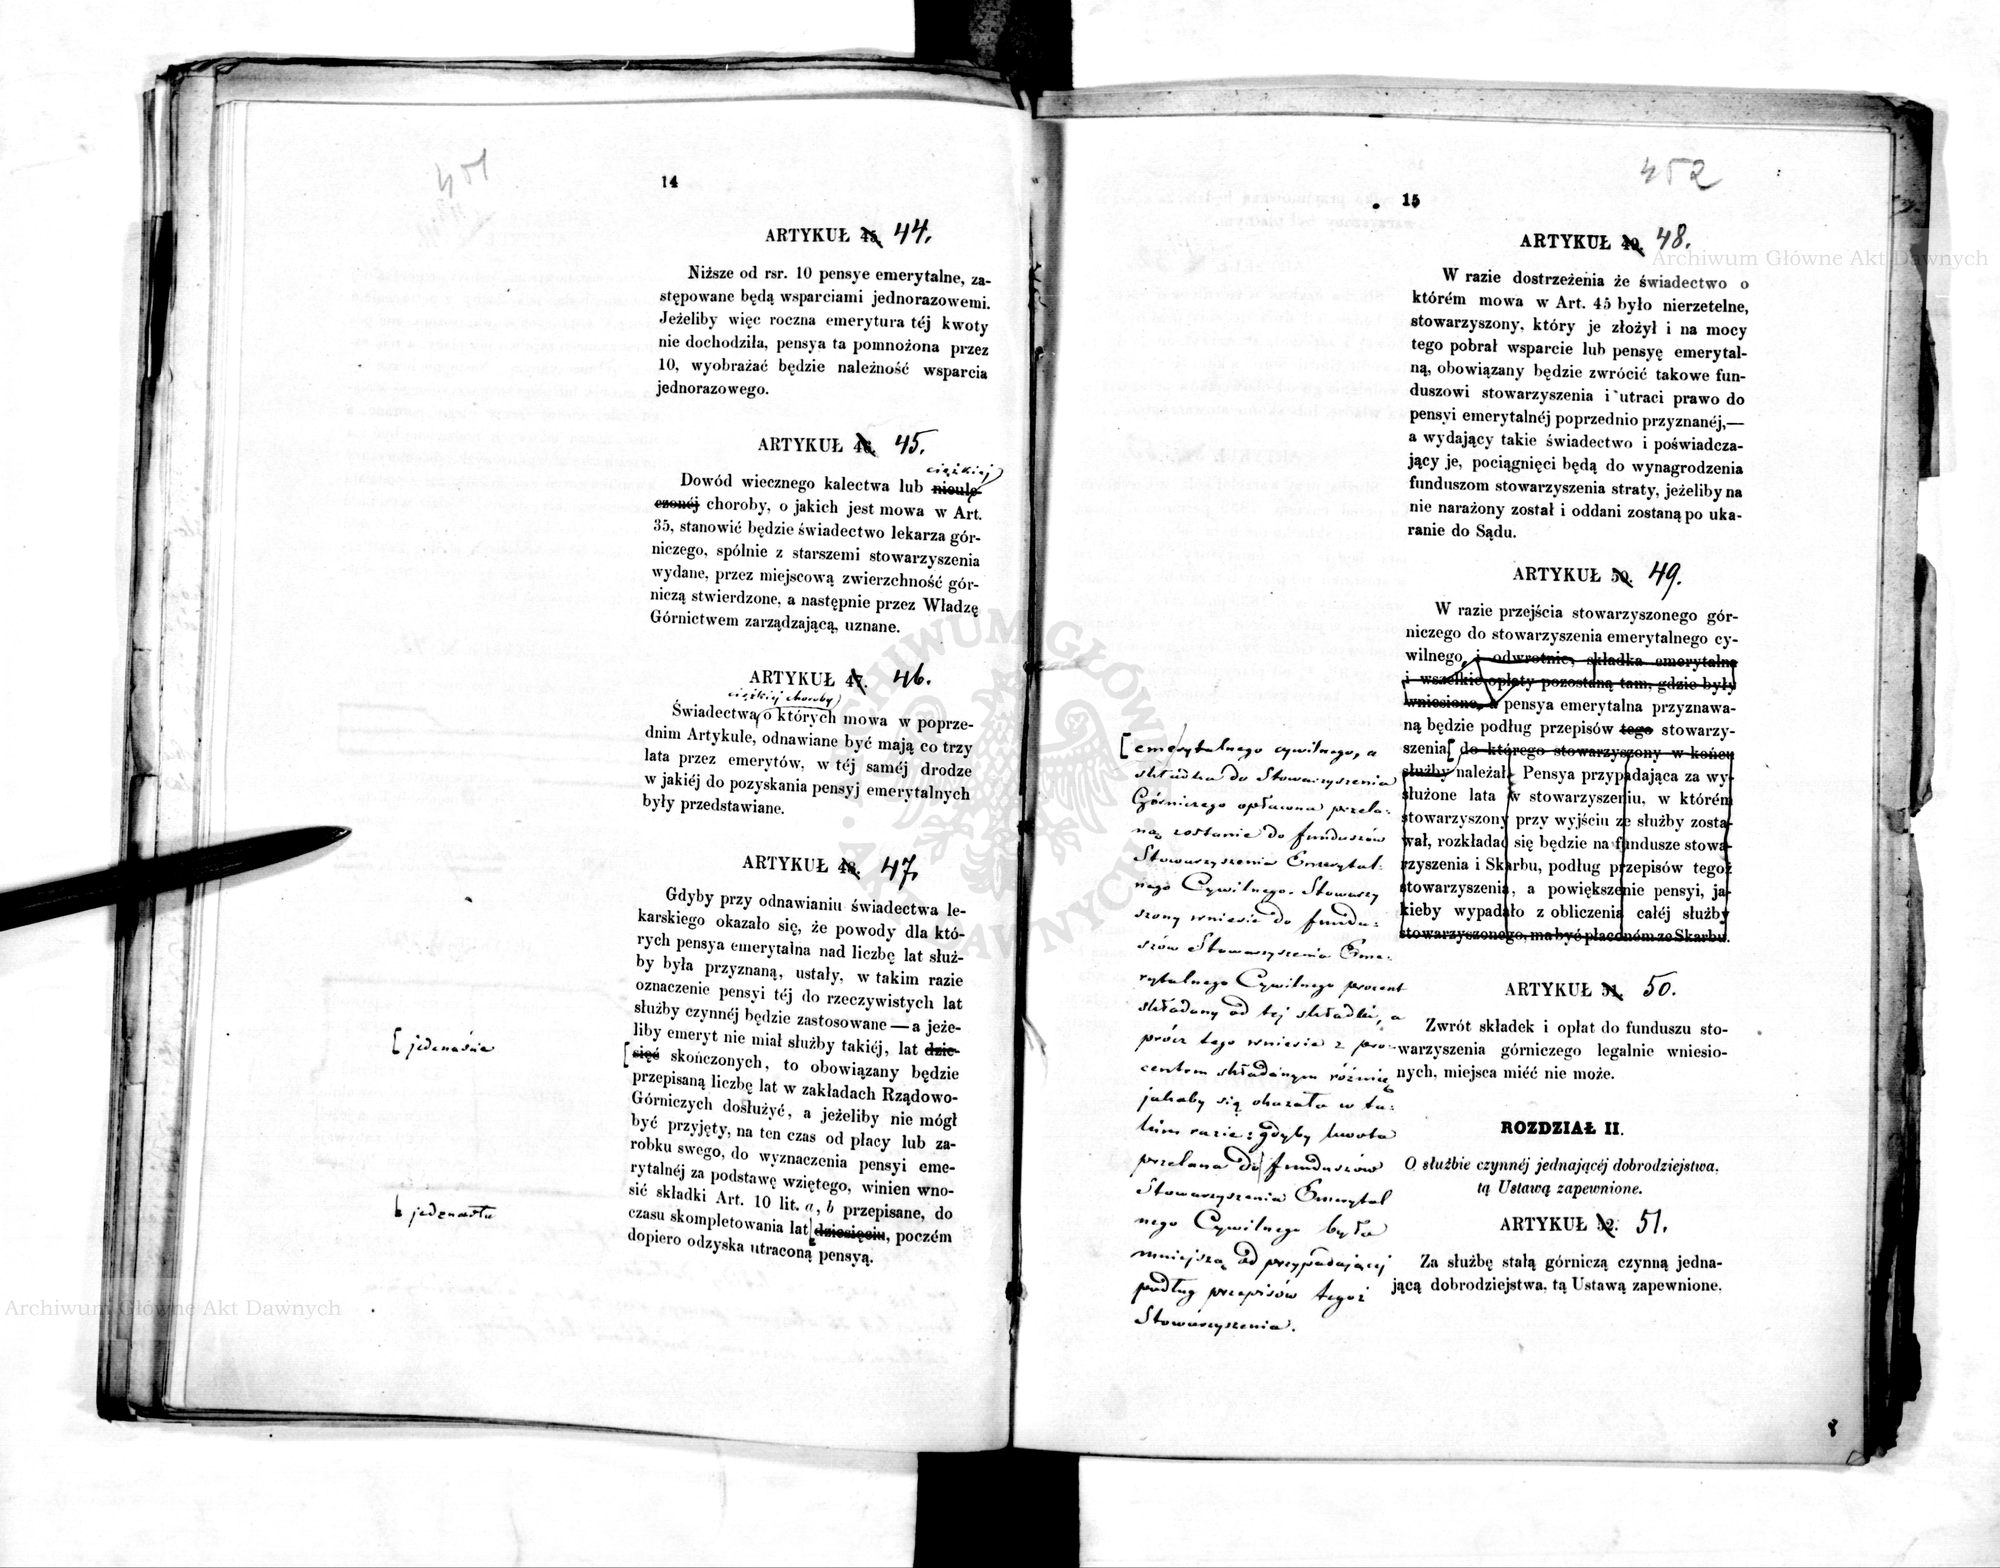 451
14
ARTYKUŁ 45. 44.
Niższe od rsr. 10 pensye emerytalne, za-
stępowane będą wsparciami jednorazowemi.
Jeżeliby więc roczna emerytura téj kwoty
nie dochodziła, pensya ta pomnożona przez
10, wyobrażać będzie należność wsparcia
jednorazowego.
ARTYKUŁ 46. 45.
ciężkiej
Dowód wiecznego kalectwa lub nieulę-
czonéj choroby, o jakich jest mowa w Art.
35, stanowić będzie świadectwo lekarza gór-
niczego, spólnie z starszemi stowarzyszenia
wydane, przez miejscową zwierzchność gór-
niczą stwierdzone, a następnie przez Władzę
Górnictwem zarządzającą, uznane.
ARTYKUŁ 47. 46.
ciężkiej choroby
Świadectwa o których mowa w poprze-
dnim Artykule, odnawiane być mają co trzy
lata przez emerytów, w téj saméj drodze
w jakiéj do pozyskania pensyj emerytalnych
były przedstawiane.
ARTYKUŁ 48. 47.
Gdyby przy odnawianiu świadectwa le-
karskiego okazało się, że powody dla któ-
rych pensya emerytalna nad liczbę lat służ-
by była przyznaną, ustały, w takim razie
oznaczenie pensyi téj do rzeczywistych lat
służby czynnéj będzie zastosowane — a jeże-
liby emeryt nie miał służby takiéj, lat dzie-
sięć skończonych, to obowiązany będzie
przepisaną liczbę lat w zakładach Rządowo-
Górniczych dosłużyć, a jeżeliby nie mógł
być przyjęty, na ten czas od płacy lub za-
robku swego, do wyznaczenia pensyi eme-
rytalnéj za podstawę wziętego, winien wno-
sić składki Art. 10 lit. a, b przepisane, do
czasu skompletowania lat dziesięciu, poczém
dopiero odzyska utraconą pensyą.
[ jedenaście
jedenastu
452
15
ARTYKUŁ 49. 48.
W razie dostrzeżenia że świadectwo o
którém mowa w Art. 45 było nierzetelne,
stowarzyszony, który je złożył i na mocy
tego pobrał wsparcie lub pensyę emerytal-
ną, obowiązany będzie zwrócić takowe fun-
duszowi stowarzyszenia i utraci prawo do
pensyi emerytalnéj poprzednio przyznanéj,—
a wydający takie świadectwo i poświadcza-
jący je, pociągnięci będą do wynagrodzenia
funduszom stowarzyszenia straty, jeżeliby na
nie narażony został i oddani zostaną po uka-
ranie do Sądu.
ARTYKUŁ 50. 49.
W razie przejścia stowarzyszonego gór-
niczego do stowarzyszenia emerytalnego cy-
wilnego, i odwrotnie, składka emerytalna
i wszelkie opłaty pozostaną tam, gdzie były
wniesione, a pensya emerytalna przyznawa-
ną będzie podług przepisów tego stowarzy-
szenia[ do którego stowarzyszony w końcu
służby należał. Pensya przypadająca za wy-
służone lata w stowarzyszeniu, w którém
stowarzyszony przy wyjściu ze służby zosta-
wał, rozkładać się będzie na fundusze stowa-
rzyszenia i Skarbu, podług przepisów tegoż
stowarzyszenia, a powiększenie pensyi, ja-
kieby wypadało z obliczenia całéj służby
stowarzyszonego, ma być płaconém ze Skarbu.
[ emerytalnego cywilnego, a
składka do Stowarzyszenia
Górniczego opłacona przela-
ną zostanie do funduszów
Stowarzyszenia Emerytal-
nego Cywilnego. Stowarzy
szony wniesie do fundu-
szów Stowarzyszenia Eme-
rytalnego Cywilnego procent
składany od tej składki, a
prócz tego wniesie z pro-
centem składanym różnicę
jakaby się okazała w ta-
kim razie: gdyby kwota
przelana do funduszów
Stowarzyszenia Emerytal
nego Cywilnego była
mniejszą od przypadającej
podług przepisów tegoż
Stowarzyszenia.
ARTYKUŁ 51. 50.
Zwrót składek i opłat do funduszu sto-
warzyszenia górniczego legalnie wniesio-
nych, miejsca miéć nie może.
ROZDZIAŁ II.
O służbie czynnéj jednającéj dobrodziejstwa,
tą Ustawą zapewnione.
ARTYKUŁ 52. 51.
Za służbę stałą górniczą czynną jedna-
jącą dobrodziejstwa, tą Ustawą zapewnione,
8
Archiwum Główne Akt Dawnych
Archiwum Główne Akt Dawnych
ARCHIWUM GŁÓWNE AKT DAWNYCH